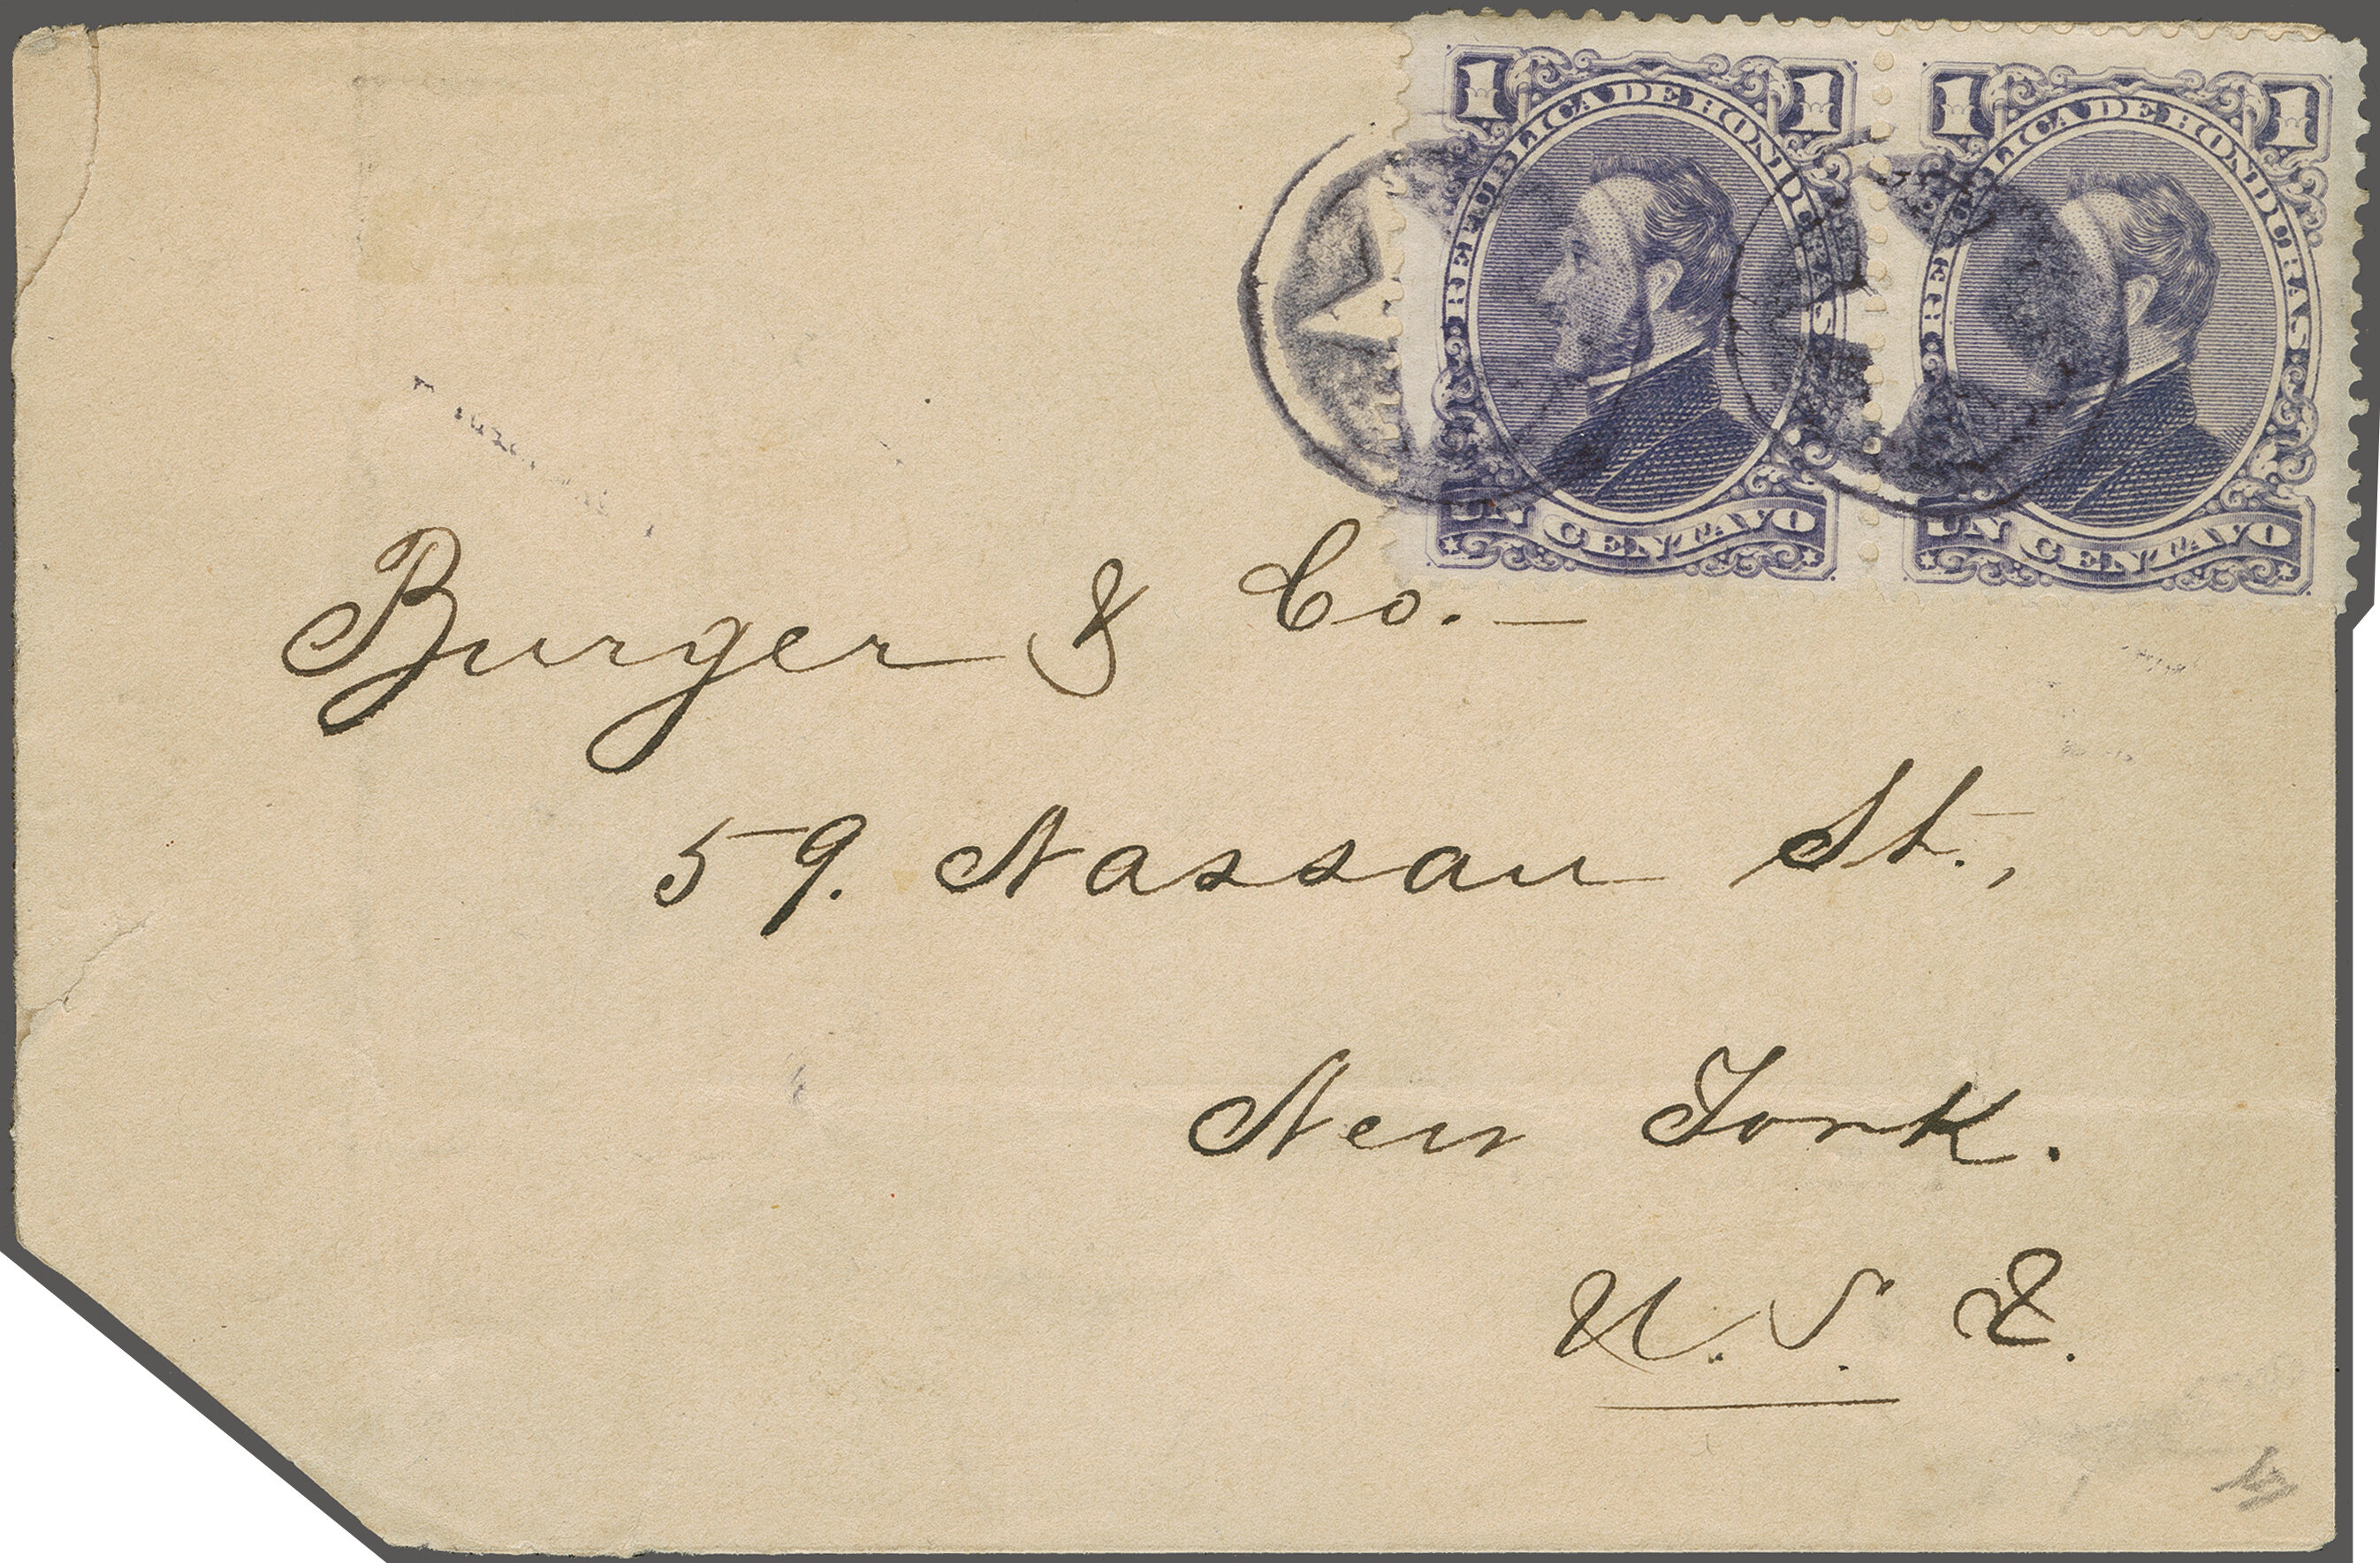 1 1 1 1
REPUBLICA DE HONDURAS
UN CENTAVO
LICA DE HONDURAS
UN CENTAVO
Burger & Co.—
59. Nassau St.,
New York.
U.S. E.